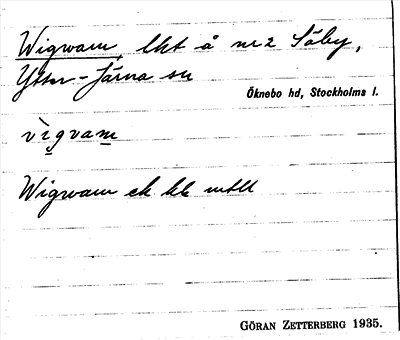 Wigwam, lht å nr 2 Säby,
Ytter-Järna sn
Öknebo hd, Stockholms l.
vìgvam
Wigwam ek kbl mtll
GÖRAN ZETTERBERG 1935.